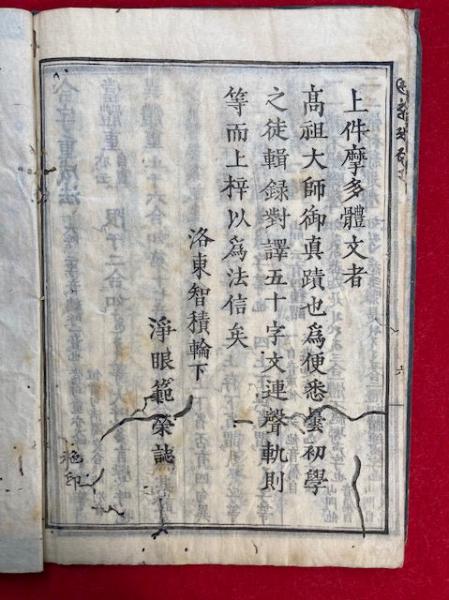 上件摩多體文者
高祖大師御真蹟也為便悉曇初學
之徒輯録對譯五十字文連聲軌則
等而上梓以為法信矣
洛東智積輪下
淨眼範榮誌
施印
六